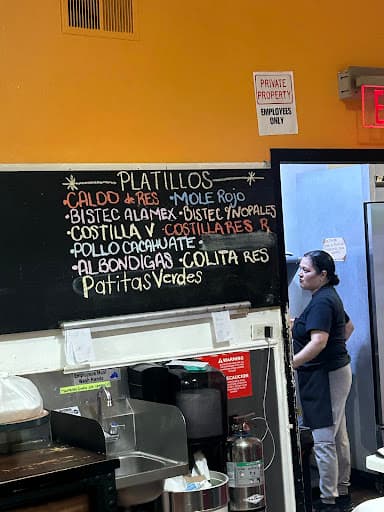 PRIVATE
PROPERTY
EMPLOYEES
ONLY
E
PLATILLOS
•CALDO de RES •MOLE ROJO
•BISTEC ALAMEX •BISTEC Y NOPALES
•COSTILLA V COSTILLA RES R
•POLLO CACAHUATE•
•ALBONDIGAS •COLITA RES
Patitas Verdes
WARNING
PRECAUCION
Employees Must
Wash Hands